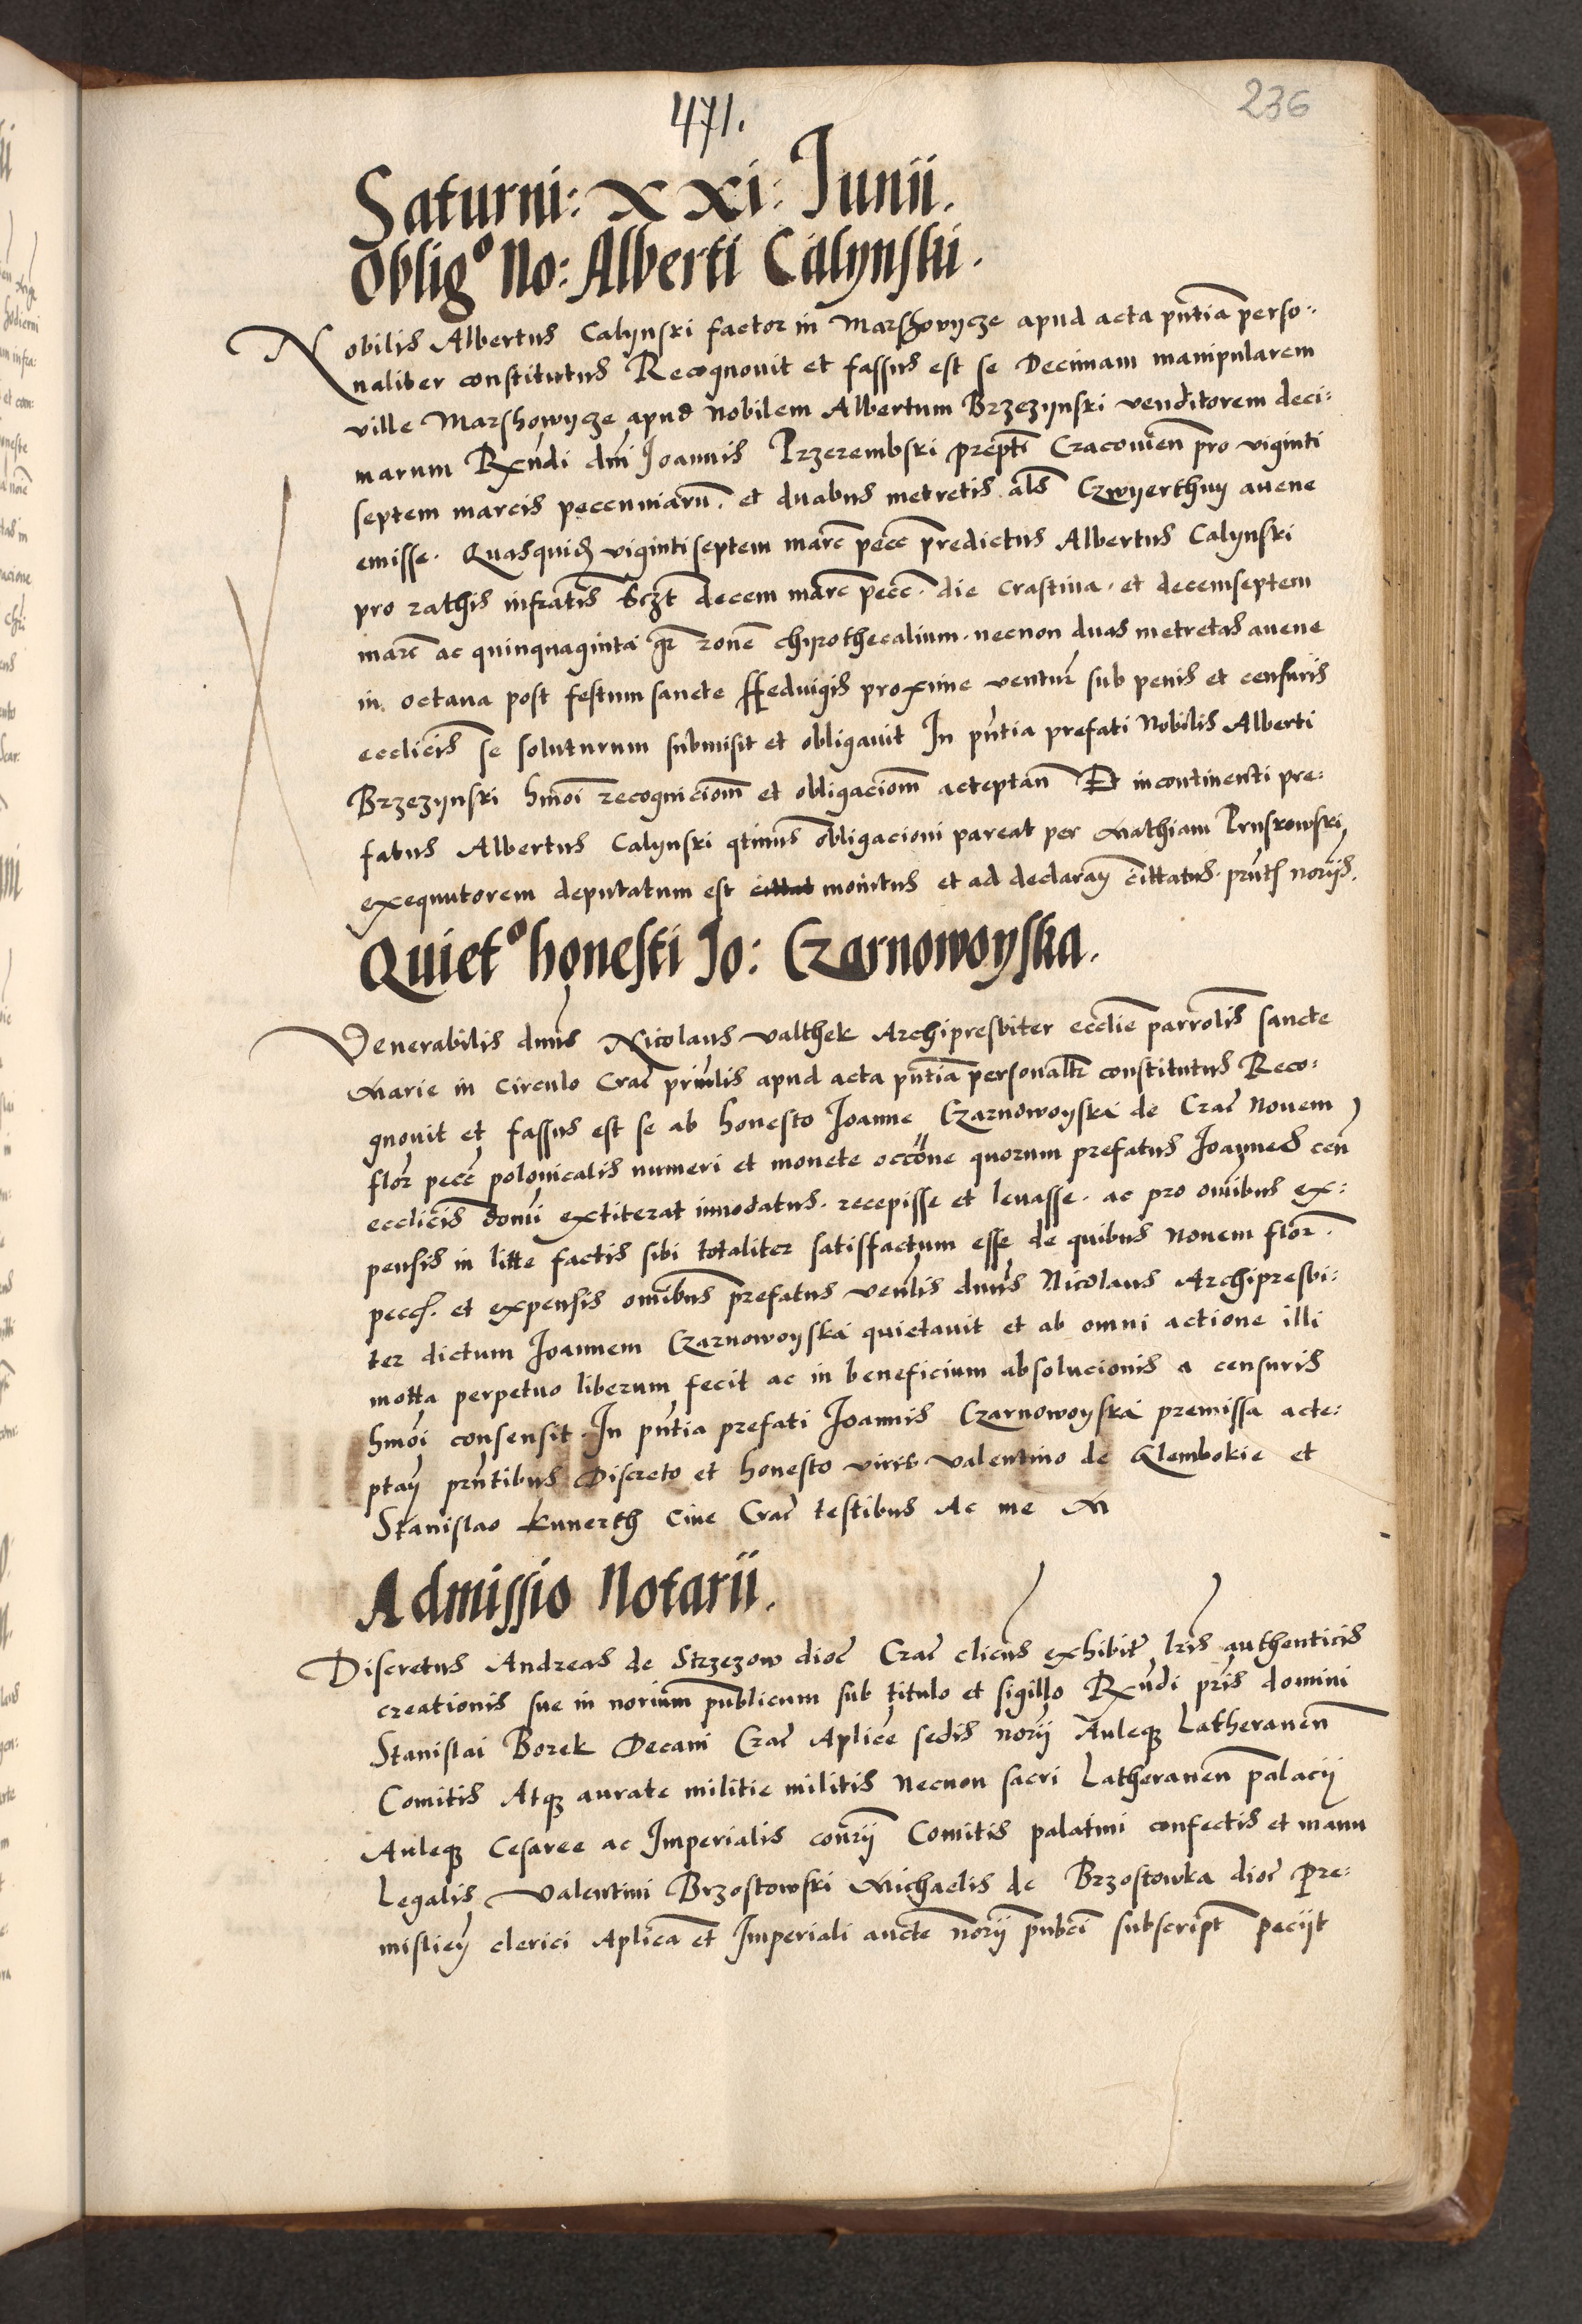 471.
236
Saturni: xxi: Junii.
Obligº No: Alberti Calynskii.
Nobilis Albertus Calynski factor in Marshowycze apud acta pñtia perso:
naliter constitutus Recognovit et fassus est se Decimam manipularem
ville Marshowycze apud Nobilem Albertum Brzezynski venditorem deci:
marum Rxndi dñi Joannis Przerembski prepti Cracovieñ pro viginti
septem marcis peccuniarũ. et duabus metretis als Czwyerthny avene
emisse. Quasquid viginti septem marc pecc predictus Albertus Calynski
pro rathis infratis sczt decem marc pecc. die crastina. et decemseptem
marc ac quinquaginta gr rone chyrothecalium. necnon duas metretas avene
in octava post festum sancte Heduigis proxime ventur sub penis et censuris
ecclicis se soluturum submisit et obligavit In pñtia prefati Nobilis Alberti
Brzezynski hmoi recognicionm et obligacionm acteptan Et incontinenti pre:
fatus Albertus Calynski qtinus obligacioni pareat per Mathiam Pruskowski
exequutorem deputatum est cittat monitus et ad declaran cittatus. prñts noriis.
Quietº honesti Jo: Czarnowoyska.
Venerabilis dnns Nicolaus Valthek Archipresbiter ecclie parrolis sancte
Marie in Circulo Crac prinlis apud acta pñtia personaltr constitutus Reco:
gnovit et fassus est se ab honesto Joanne Czarnowoyska de Crac Novem
flor pecc polonicalis numeri et monete occone quorum prefatus Joannes cen
ecclicis domi extiterat innodatus. recepisse et levasse. ac pro omibus ex:
pensis in litte factis sibi totaliter satisfactum esse de quibus Novem flor.
pecc. et expensis omibus prefatus venlis dnns Nicolaus Archipresbi:
ter dictum Joannem Czarnowoyska quietavit et ab omni actione illi
motta perpetuo liberum fecit ac in beneficium absolucionis a censuris
hmoi consensit. In pñtia prefati Joannis Czarnowoyska premissa acte:
ptan prñtibus Discreto et honesto viris Valentino de Glembokie et
Stanislao Kunerth Cive Crac testibus Ac me M
Admissio Notarii.
Discretus Andreas de Strzezow dioc Crac clicus exhibit lris authenticis
creationis sue in norium publicum sub titulo et sigillo Rxndi pris domini
Stanislai Borek Decani Crac Aplice sedis norii Auleqz Latheraneñ
Comitis Atqz aurate militie militis Necnon sacri Latheraneñ palacii
Auleqz Cesaree ac Imperialis conrii Comitis palatini confectis et manu
Legalis Valentini Brzostowski Michaelis de Brzostowka dioc Pre:
misliey clerici Aplica et Imperiali aucte norii publci subscript peciit